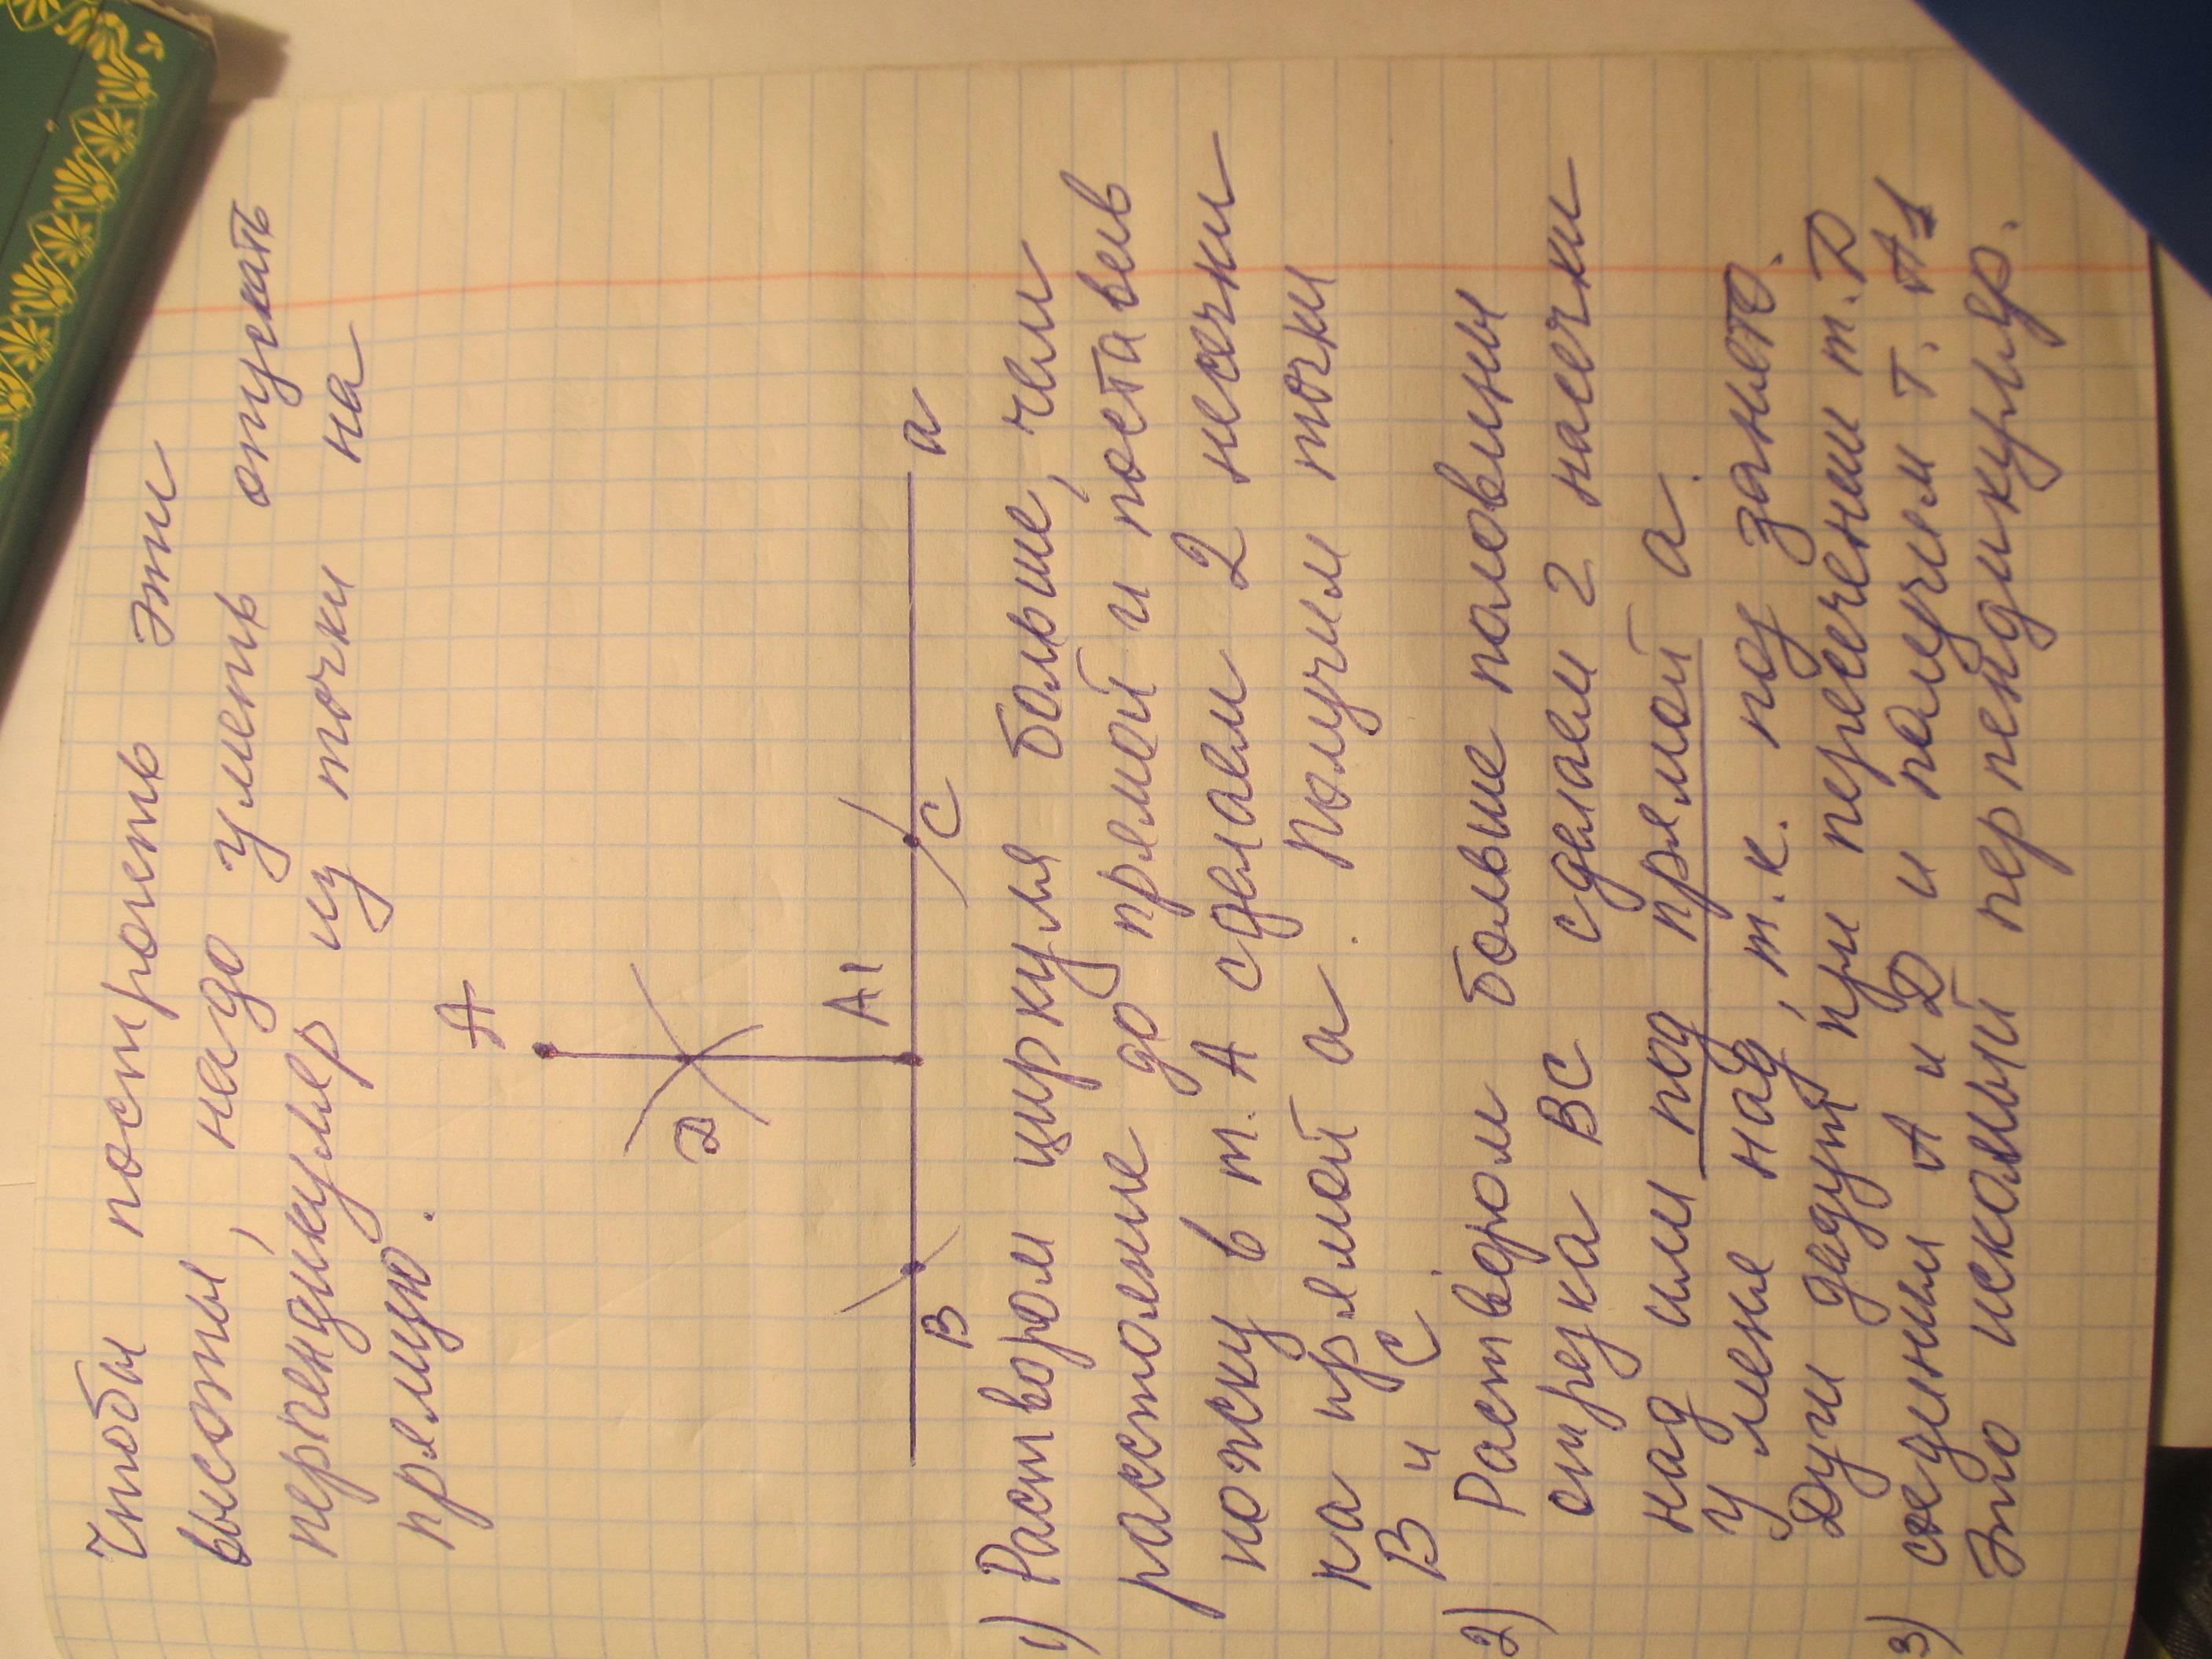 Чтобы построеть эти
высоты, надо уметь опускать
перпендикуляр из точки на
прямую.
A
D
A1
B
C
a
1) Раствором циркуля больше, чем
растояние до прямой и поставив
ножку в т. A сделаем 2 несечки
на прямой a. Получим точки
B и C
2) Раствором больше половины
отрезка BC сделаем 2 насечки
над или под прямой a.
У меня над, т.к. под занято.
Дуги дадут при пересечении т. D
3) соединим A и D и получим т. A1
Это искомый перпендикуляр.